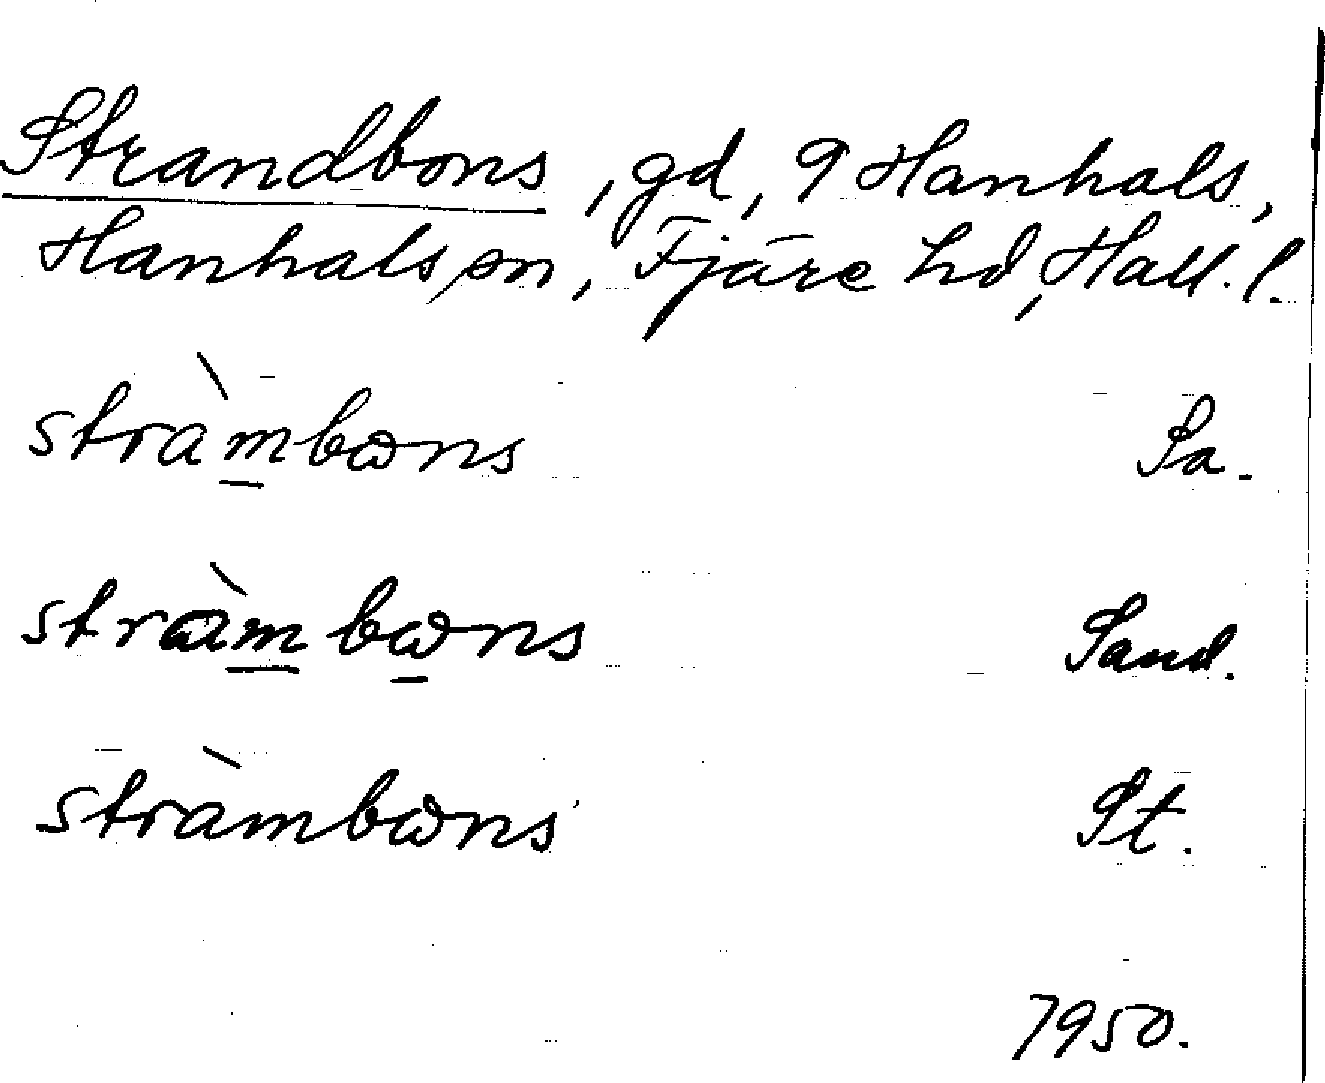 Strandbons, gd, 9 Hanhals,
Hanhals sn, Fjäre hd, Hall. l.
stràmbωns Sa.
stràmbωns Sand.
stràmbωns St.
1950.